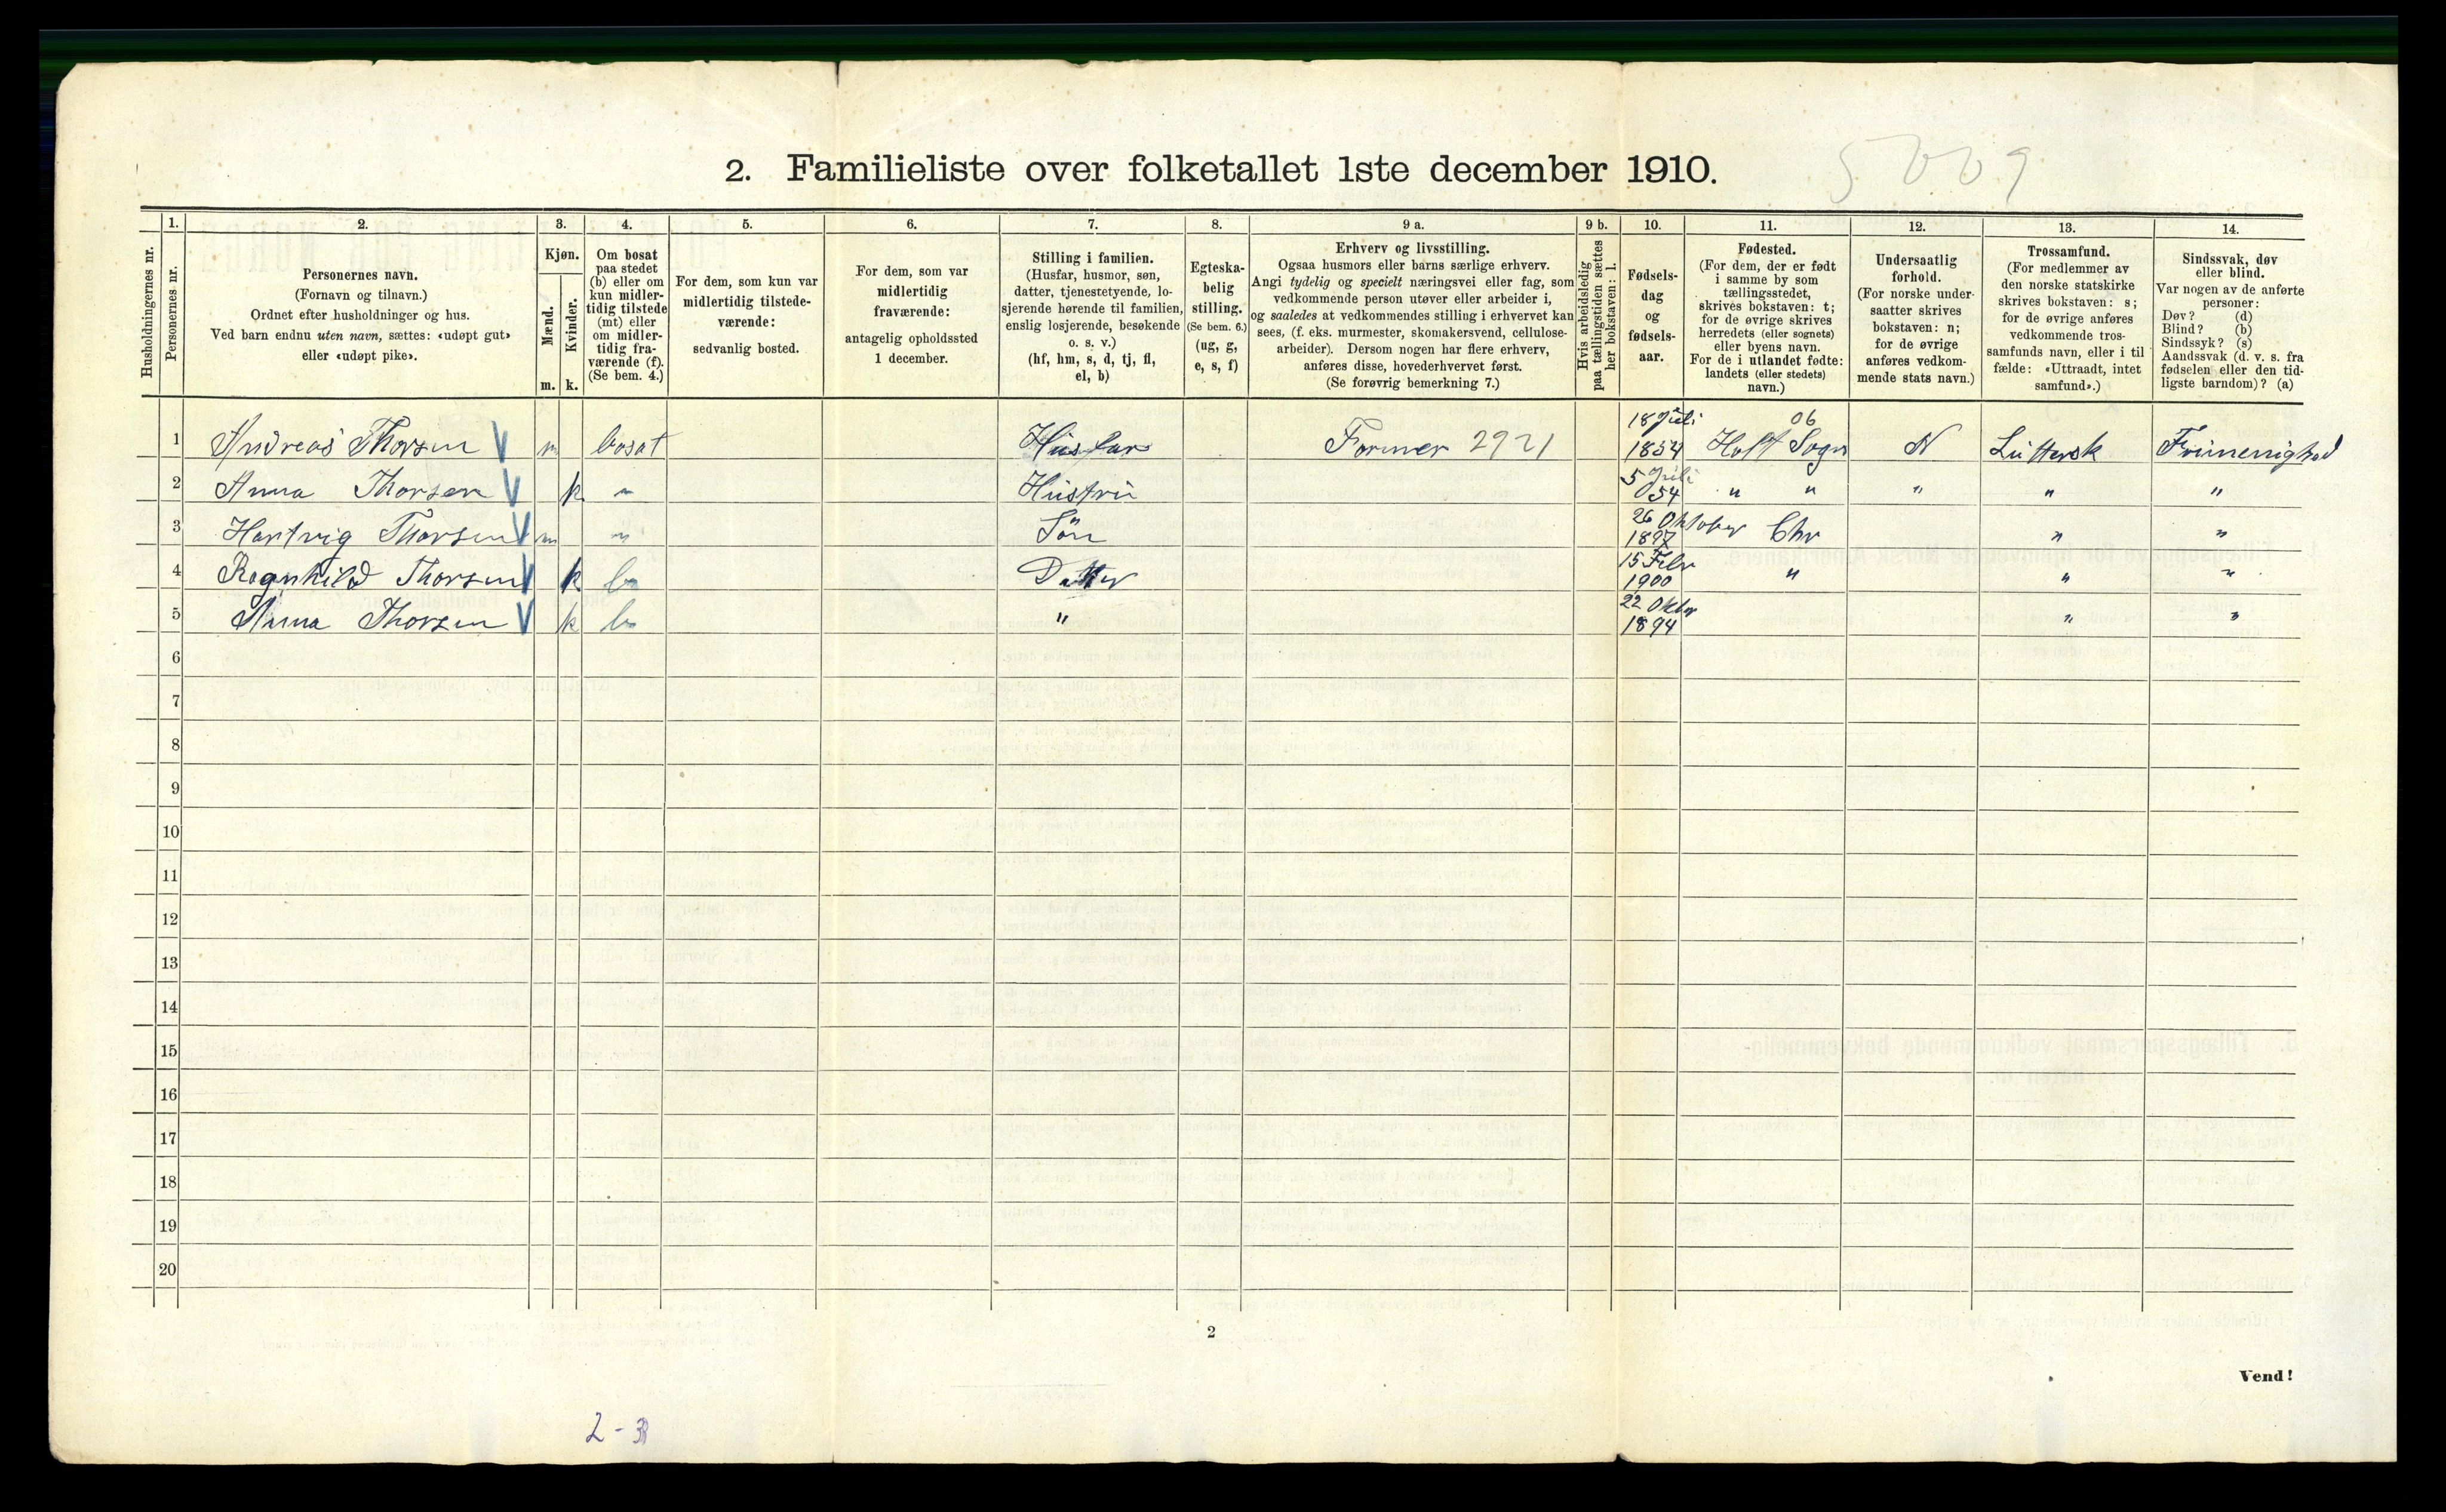 5009
2. Familieliste over folketallet 1ste december 1910.
Husholdningernes nr.
1.
Personernes nr.
2.
Personernes navn.
(Fornavn og tilnavn.)
Ordnet efter husholdninger og hus.
Ved barn endnu uten navn, sættes: «udøpt gut»
eller «udøpt pike».
3.
Kjøn.
Mænd.
Kvinder.
m. k.
4.
Om bosat
paa stedet
(b) eller om
kun midler-
tidig tilstede
(mt) eller
om midler-
tidig fra-
værende (f).
(Se bem. 4.)
5.
For dem, som kun var
midlertidig tilstede-
værende:
sedvanlig bosted.
6.
For dem, som var
midlertidig
fraværende:
antagelig opholdssted
1 december.
7.
Stilling i familien.
(Husfar, husmor, søn,
datter, tjenestetyende, lo-
sjerende hørende til familien,
enslig losjerende, besøkende
o. s. v.)
(hf, hm, s, d, tj, fl,
el, b)
8.
Egteska-
belig
stilling.
(Se bem. 6.)
(ug, g,
e, s, f)
9 a.
Erhverv og livsstilling.
Ogsaa husmors eller barns særlige erhverv.
Angi tydelig og specielt næringsvei eller fag, som
vedkommende person utøver eller arbeider i,
og saaledes at vedkommendes stilling i erhvervet kan
sees, (f. eks. murmester, skomakersvend, cellulose-
arbeider). Dersom nogen har flere erhverv,
anføres disse, hovederhvervet først.
(Se forøvrig bemerkning 7.)
9 b.
Hvis arbeidsledig
paa tællingstiden sættes
her bokstaven: l.
10.
Fødsels-
dag
og
fødsels-
aar.
11.
Fødested.
(For dem, der er født
i samme by som
tællingsstedet,
skrives bokstaven: t;
for de øvrige skrives
herredets (eller sognets)
eller byens navn.
For de i utlandet fødte:
landets (eller stedets)
navn.)
12.
Undersaatlig
forhold.
(For norske under-
saatter skrives
bokstaven: n;
for de øvrige
anføres vedkom-
mende stats navn.)
13.
Trossamfund.
(For medlemmer av
den norske statskirke
skrives bokstaven: s;
for de øvrige anføres
vedkommende tros-
samfunds navn, eller i til-
fælde: «Uttraadt, intet
samfund».)
14.
Sindssvak, døv
eller blind.
Var nogen av de anførte
personer:
Døv? (d)
Blind? (b)
Sindssyk? (s)
Aandssvak (d. v. s. fra
fødselen eller den tid-
ligste barndom)? (a)
1 Andreas Thorsen V m bosat Husfar Former 2921 18 Juli 1854 Holt Sogn 06 N Luttersk Frimenighed
2 Anna Thorsen V k " Hustru 5 Juli 54 " " " " "
3 Hartvig Thorsen V m " Sön 26 Oktober 1897 Chr " "
4 Ragnhild Thorsen V k b Datter 15 Febr 1900 " " "
5 Anna Thorsen V k b " 22 Oktbr 1894 " "
6
7
8
9
10
11
12
13
14
15
16
17
18
19
20
2
Vend!